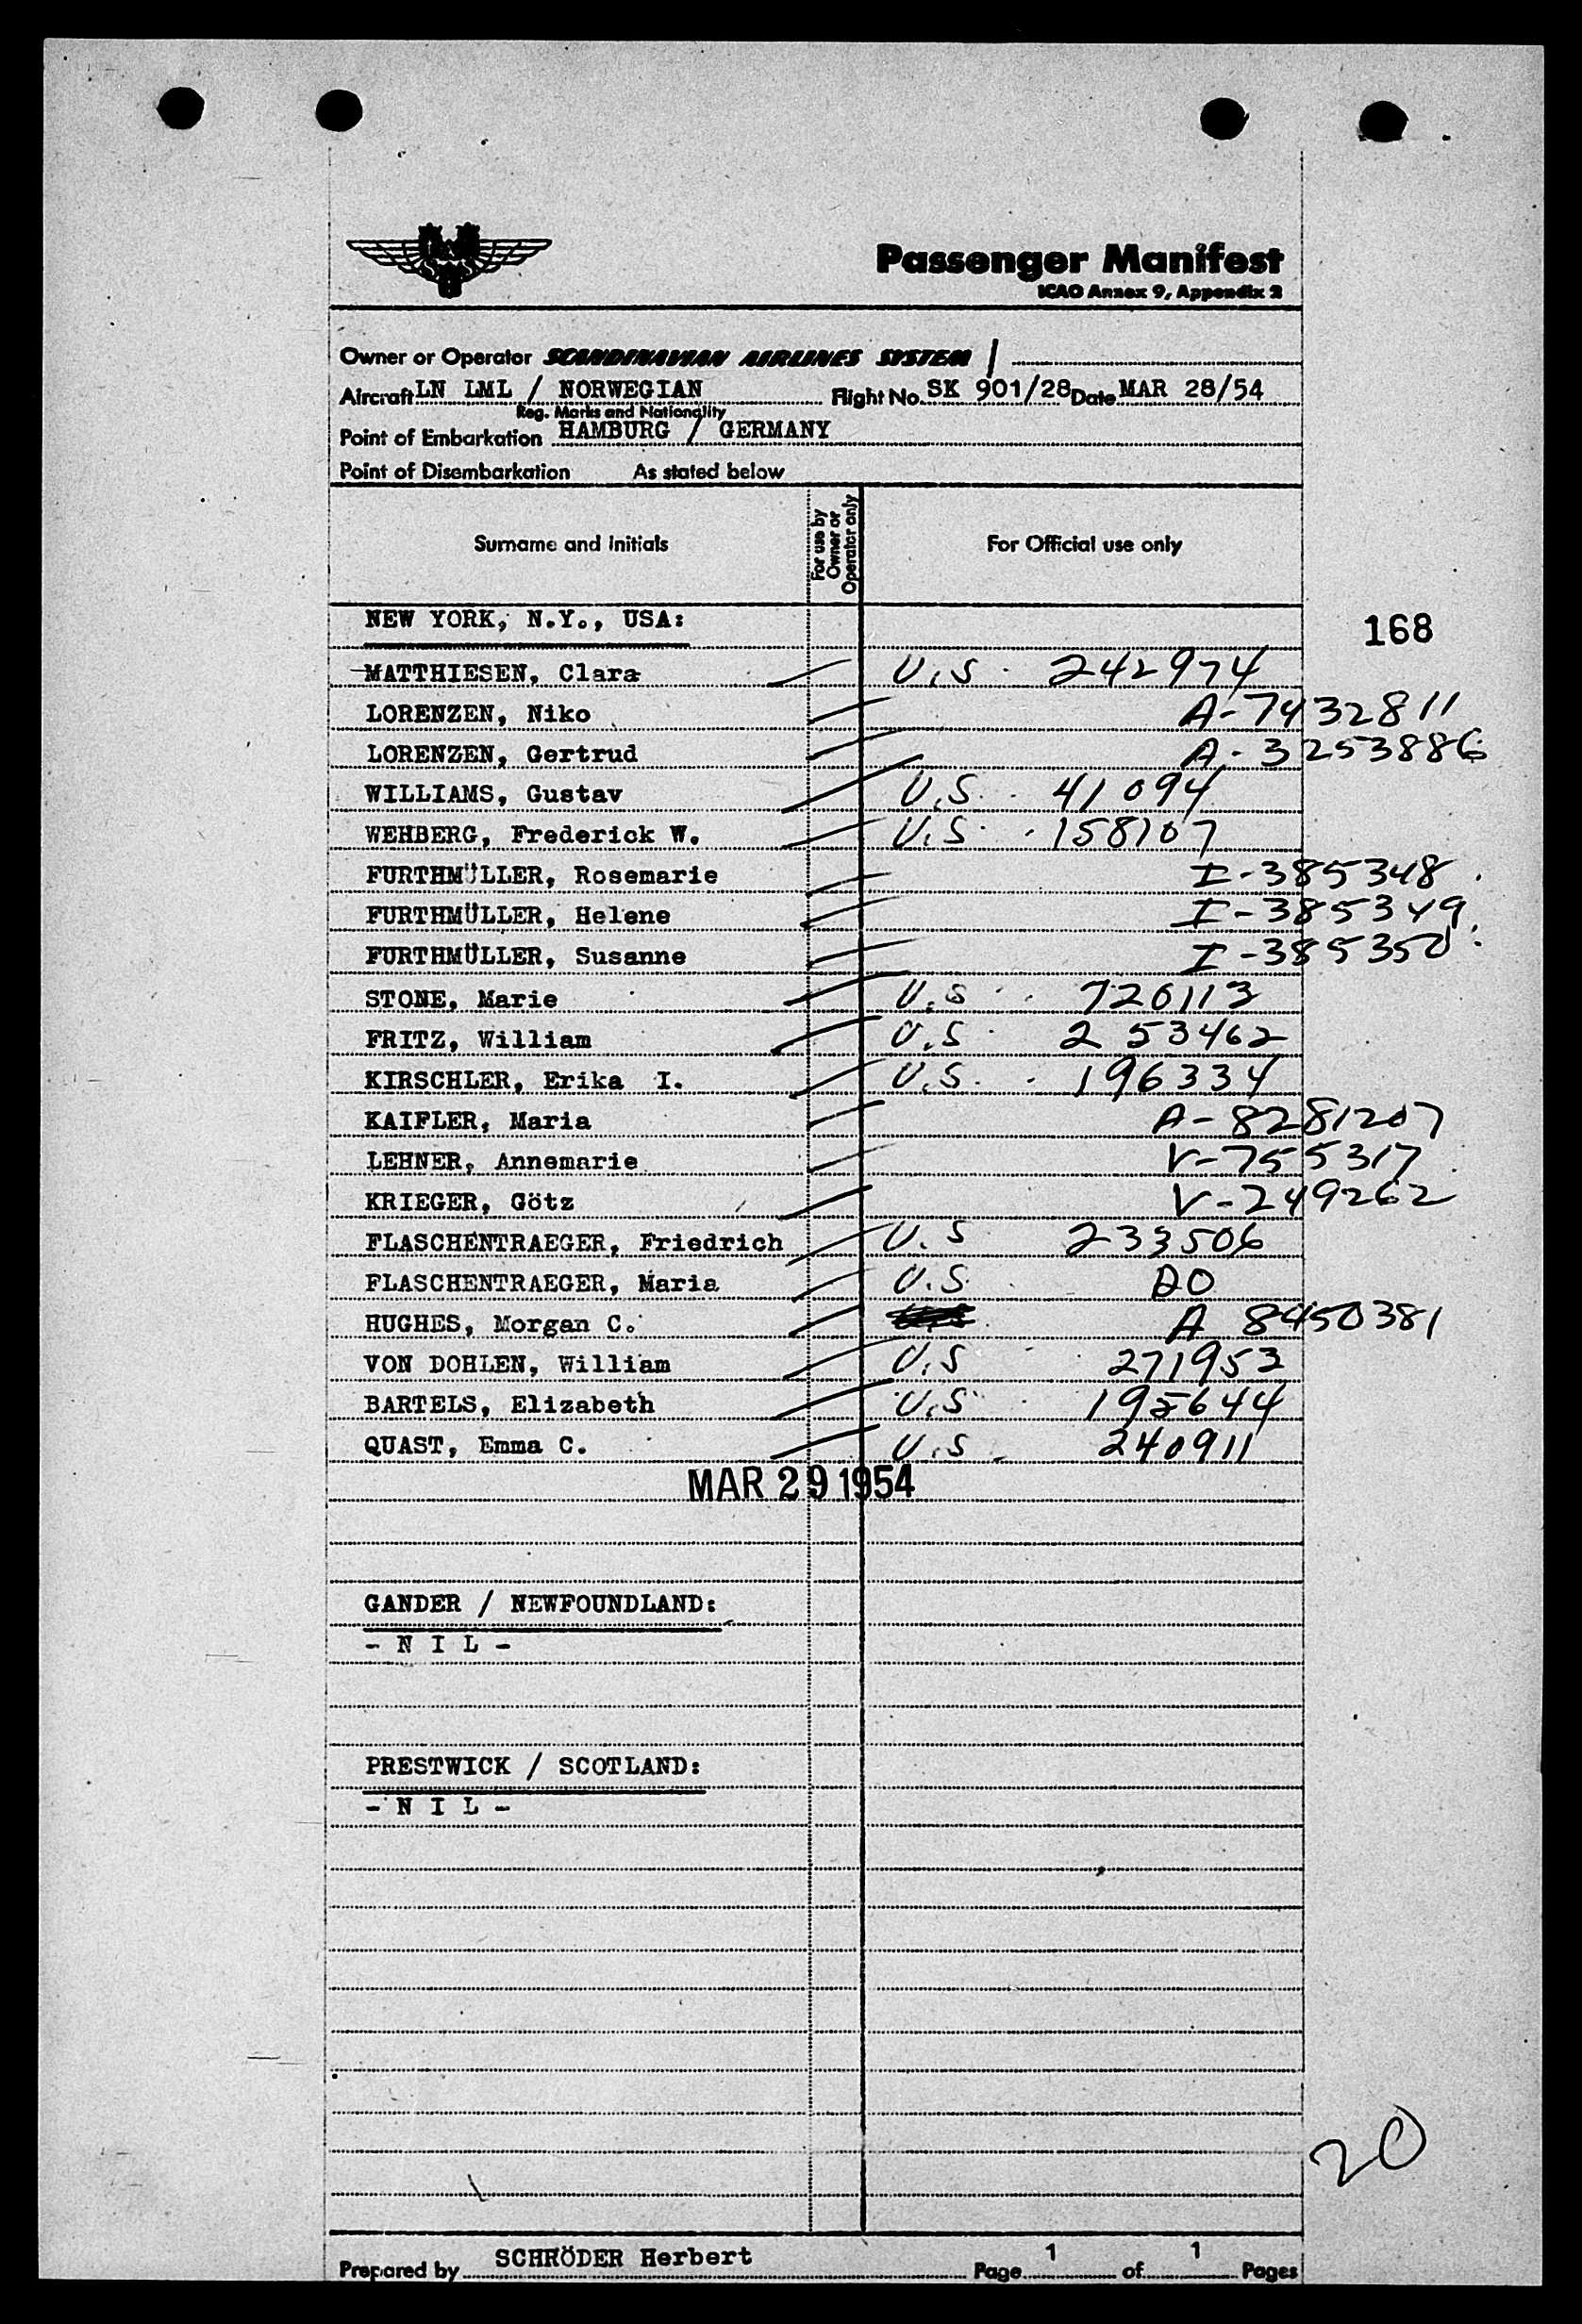 Passenger Manifest
ICAO Annex 9, Appendix 2
Owner or Operator SCANDINAVIAN AIRLINES SYSTEM /
Aircraft LN LML / NORWEGIAN Flight No. SK 901/28 Date MAR 28/54
Reg. Marks and Nationality
Point of Embarkation HAMBURG / GERMANY
Point of Disembarkation As stated below
Surname and Initials For use by Owner or Operator only For Official use only
NEW YORK, N.Y., USA:
168
MATTHIESEN, Clara U.S. 242974
LORENZEN, Niko A-7432811
LORENZEN, Gertrud A-3253886
WILLIAMS, Gustav U.S. 41094
WEHBERG, Frederick W. U.S. 158107
FURTHMÜLLER, Rosemarie I-385348
FURTHMÜLLER, Helene I-385349
FURTHMÜLLER, Susanne I-385350
STONE, Marie U.S. 726113
FRITZ, William U.S. 253462
KIRSCHLER, Erika I. U.S. 196334
KAIFLER, Maria A-8281207
LEHNER, Annemarie V-755317
KRIEGER, Götz V-249262
FLASCHENTRAEGER, Friedrich U.S 233506
FLASCHENTRAEGER, Maria U.S. DO
HUGHES, Morgan C. A 8450381
VON DOHLEN, William U.S 271953
BARTELS, Elizabeth U.S 195644
QUAST, Emma C. U.S. 240911
MAR 29 1954
GANDER / NEWFOUNDLAND:
- N I L -
PRESTWICK / SCOTLAND:
- N I L -
20
Prepared by SCHRÖDER Herbert Page 1 of 1 Pages